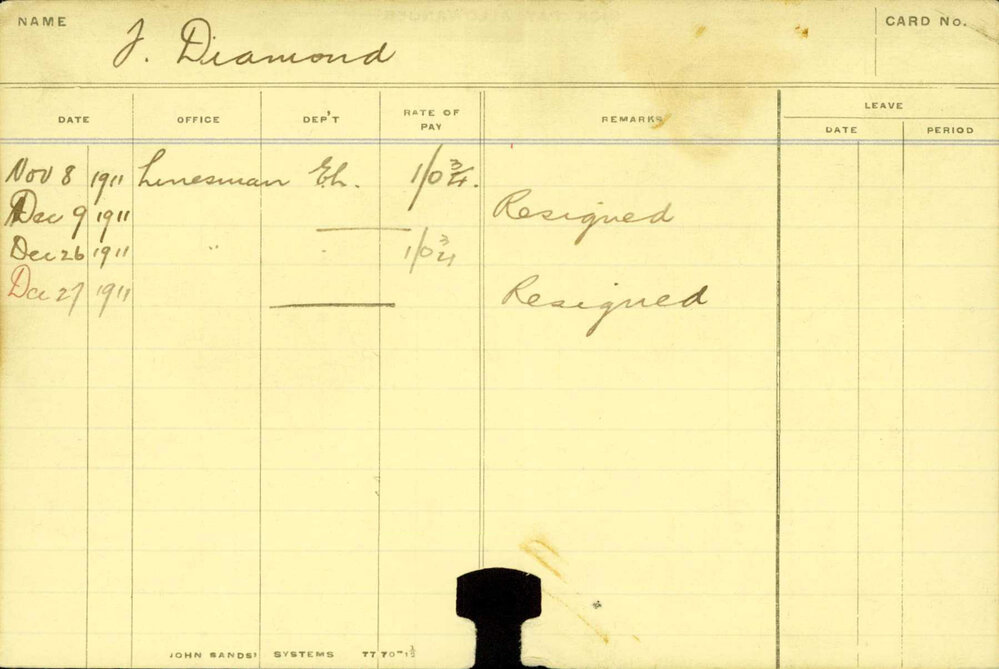 NAME J. Diamond CARD No.
DATE OFFICE DEP'T RATE OF PAY REMARKS LEAVE
DATE PERIOD
Nov 8 1911 Linesman E.L. 1/0 3/4.
Dec 9 1911 Resigned
Dec 26 1911 " " 1/0 3/4
Dec 27 1911 Resigned
JOHN SANDS' SYSTEMS